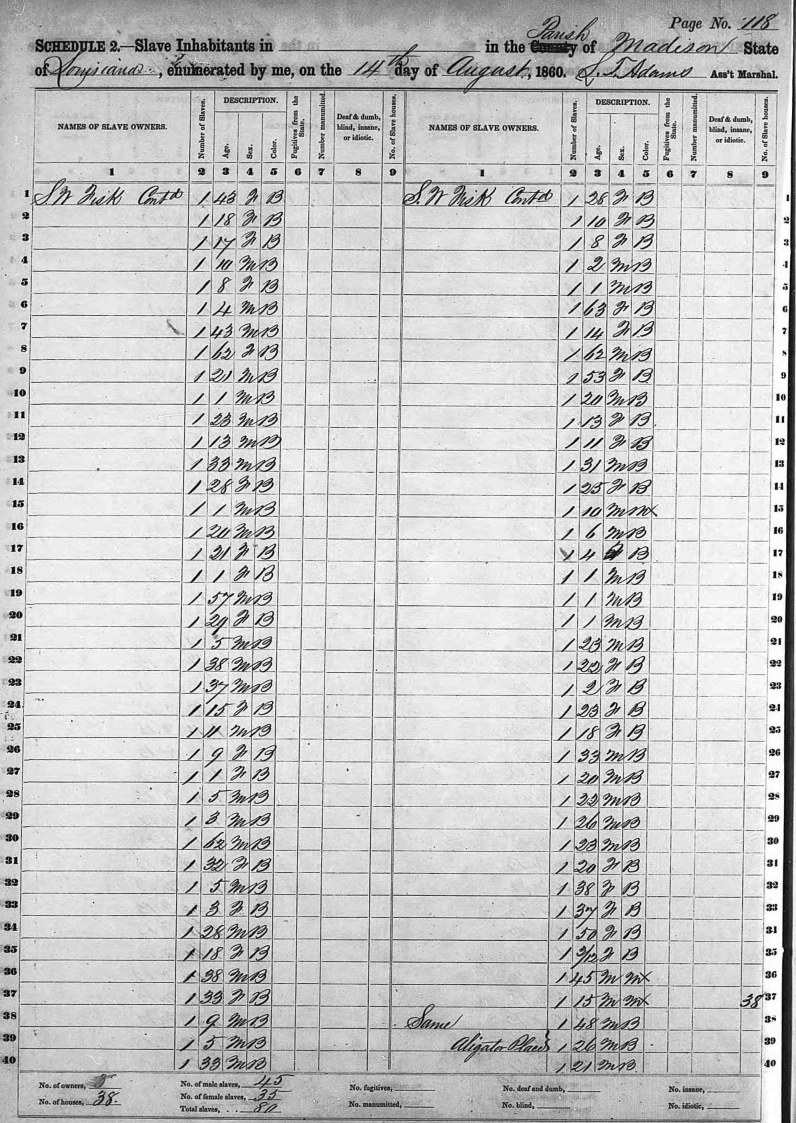 Page No. 118
SCHEDULE 2.—Slave Inhabitants in in the County Parish of Madison State
of Louisiana, enumerated by me, on the 14th day of August, 1860. L. T. Adams Ass't Marshal.
NAMES OF SLAVE OWNERS. Number of Slaves. DESCRIPTION. Age. Sex. Color. Fugitives from the State. Number manumitted. Deaf & dumb, blind, insane, or idiotic. No. of Slave houses. NAMES OF SLAVE OWNERS. Number of Slaves. DESCRIPTION. Age. Sex. Color. Fugitives from the State. Number manumitted. Deaf & dumb, blind, insane, or idiotic. No. of Slave houses.
1 2 3 4 5 6 7 8 9 1 2 3 4 5 6 7 8 9
1 S. W. Fisk Contd 1 43 F B S. W. Fisk Contd 1 28 F B 1
2 1 18 F B 1 10 F B 2
3 1 17 F B 1 8 F B 3
4 1 10 M B 1 2 M B 4
5 1 8 F B 1 1 M B 5
6 1 4 M B 1 63 F B 6
7 1 43 M B 1 14 F B 7
8 1 62 F B 1 62 M B 8
9 1 21 M B 1 53 F B 9
10 1 1 M B 1 20 M B 10
11 1 23 M B 1 13 F B 11
12 1 13 M B 1 11 F B 12
13 1 33 M B 1 31 M B 13
14 1 28 F B 1 25 F B 14
15 1 1 M B 1 10 M MX 15
16 1 20 M B 1 6 M B 16
17 1 21 F B 1 4 B 17
18 1 1 F B 1 1 M B 18
19 1 57 M B 1 1 M B 19
20 1 29 F B 1 1 M B 20
21 1 5 M B 1 23 M B 21
22 1 38 M B 1 22 F B 22
23 1 37 M B 1 2 F B 23
24 1 15 F B 1 23 F B 24
25 1 11 M B 1 18 F B 25
26 1 9 F B 1 33 M B 26
27 1 1 F B 1 20 M B 27
28 1 5 M B 1 22 M B 28
29 1 3 M B 1 26 M B 29
30 1 62 M B 1 23 M B 30
31 1 32 F B 1 20 F B 31
32 1 5 M B 1 38 F B 32
33 1 3 F B 1 37 F B 33
34 1 28 M B 1 50 F B 34
35 1 18 F B 1 3/12 F B 35
36 1 38 M B 1 45 M MX 36
37 1 33 F B 1 15 M MX 38 37
38 1 9 M B Same 1 48 M B 38
39 1 5 M B Aligator Place 1 26 M B 39
40 1 33 M B 1 21 M B 40
No. of owners, No. of male slaves, 45 No. fugitives, No. deaf and dumb, No. insane,
No. of houses, 38. No. of female slaves, 35 No. manumitted, No. blind, No. idiotic,
Total slaves, 80